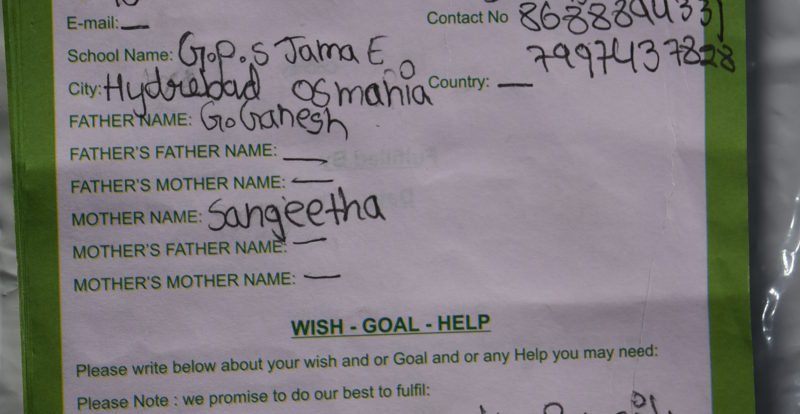 E-mail: —
Contact No 8688894433)
7997437828
School Name: G.P.S Jama E
City: Hydrebad Osmania
Country: —
FATHER NAME: G.Ganesh
FATHER'S FATHER NAME: —
FATHER'S MOTHER NAME: —
MOTHER NAME: Sangeetha
MOTHER'S FATHER NAME: —
MOTHER'S MOTHER NAME: —
WISH - GOAL - HELP
Please write below about your wish and or Goal and or any Help you may need:
Please Note : we promise to do our best to fulfil: